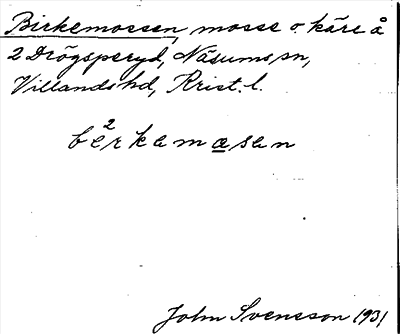 Birkemossen, mosse o. kärr å
2 Drögsperyd, Näsums sn,
Villands hd, Krist. l.
be2rkamosan
John Svensson 1931